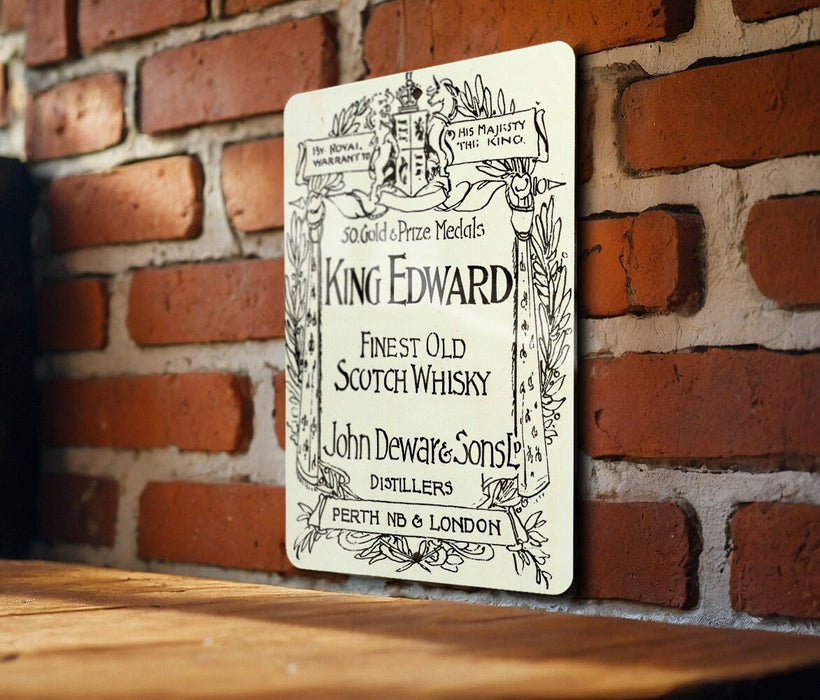 BY ROYAL
WARRANT TO
HIS MAJESTY
THE KING.
50. Gold & Prize Medals
KING EDWARD
FINEST OLD
SCOTCH WHISKY
John Dewar & Sons Ld
DISTILLERS
PERTH NB & LONDON